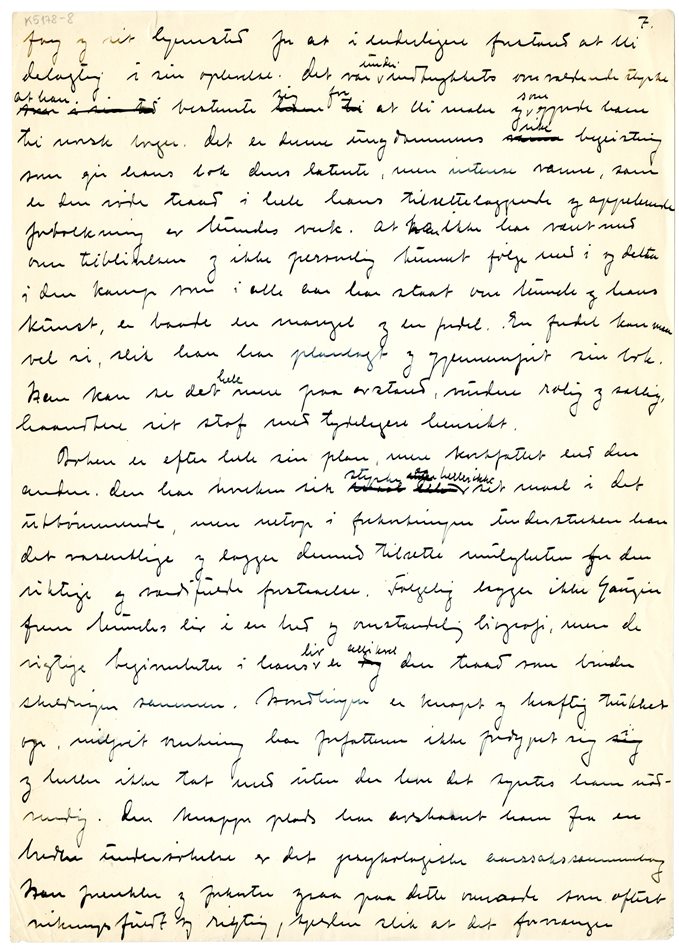 K5178-8
7.
fag og sit hjemsted for at i inderligere forstand at bli
delagtig i sin oplevelse. Det var under indtrykkets overvældende styrke
at han bestemte sig for at bli maler og som oppøvde ham
til norsk borger. Det er denne ungdommens rike begeistring
som gir hans bok dens latente, men intense varme, som
er den røde traad i hele hans tilretteleggende og
fortolkning av Munchs verk. At han ikke har været med
om tilblivelsen og ikke personlig kunnet følge med i og delta
i den kamp som i alle aar har staat om Munch og hans
kunst, er baade en mangel og en fordel. En fordel kan man
vel si, slik han har planlagt og gjennemført sin bok.
Han kan se det hele mere paa avstand, vurdere rolig og saklig,
haandtere sit stof med tydeligere hensikt.
Boken er efter hele sin plan, mere kortfattet end den
anden. Den har hverken sin styrke eller heller ikke sit maal i det
uttømmende, men netop i forkortningen understreker han
det væsentlige og lægger dermed tilrette muligheten for den
riktige og forstaaelse. Følgelig bygger ikke Gauguin
frem Munchs liv i en bred og omstændelig biografi, men de
vigtige begivenheter i hans liv er allikevel den traad som binder
skildringen sammen. Handlingen er knapt og kraftig trukket
op, virkning har forfatteren ikke sig
og heller ikke tat med uten der hvor det syntes ham nød-
vendig. Den knappe plads har avskaaret ham fra en
bredere undersøkelse av det psykologiske aarsakssammenheng
Han og ogsaa paa dette omraade som oftest
virkningsfuldt og rigtig, slik at det